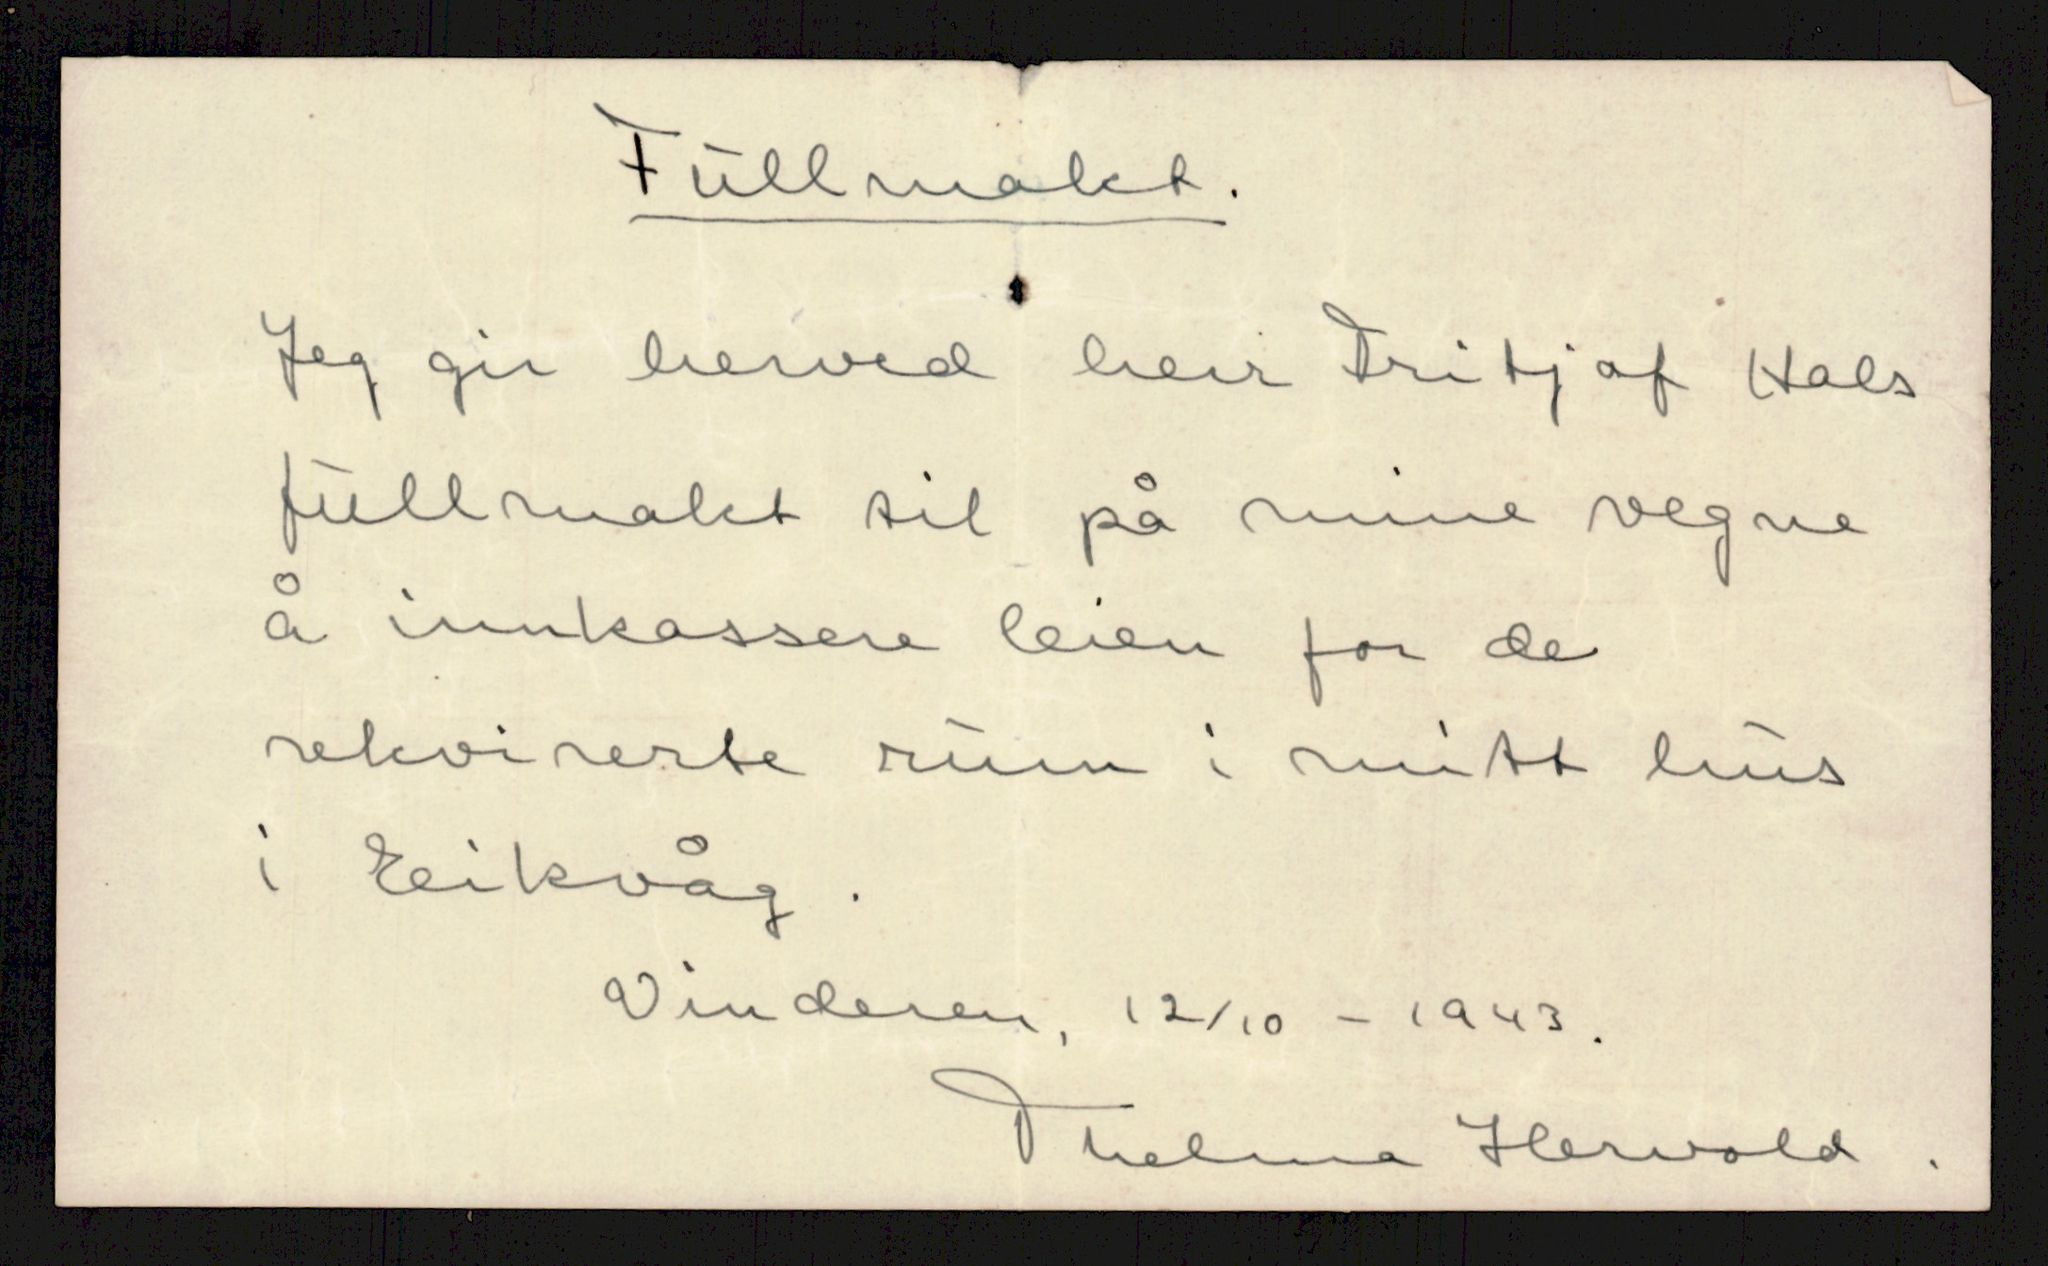 Fullmakt.
Jeg gir herved herr Fritjof Hals
fullmakt til på mine vegne
å innkassere leien for de
rekvirerte rum i mitt hus
i Eeikvåg.
Vinderen, 12/10 - 1943.
Thelma Hervold.